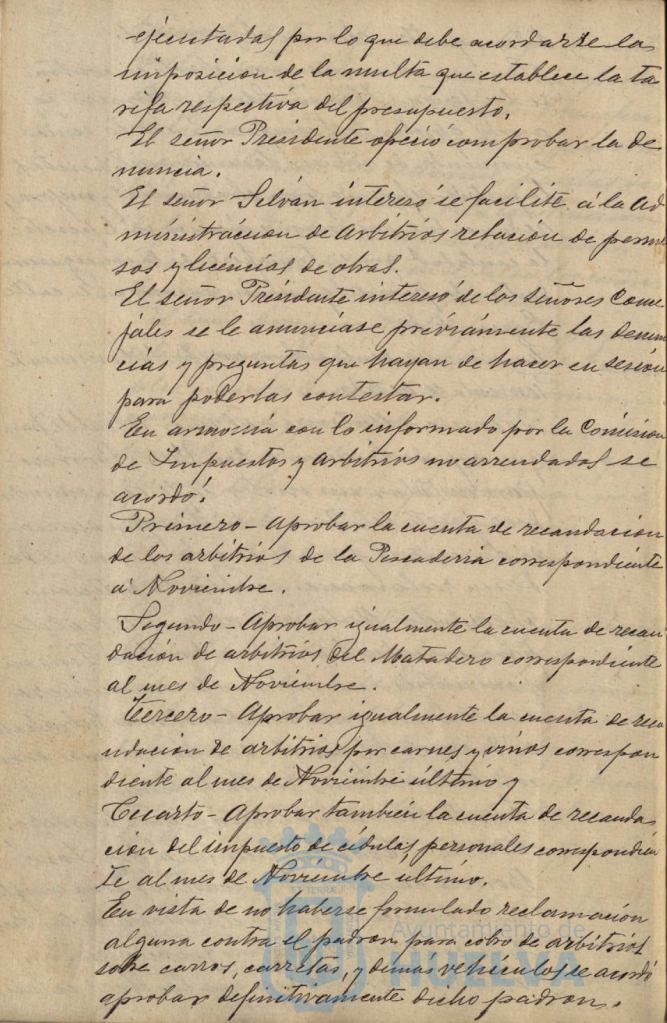 ejecutadas por lo que debe acordarse la
imposicion de la multa que establece la ta
rifa respectiva del presupuesto.
El señor Presidente ofreció comprobar la de
nuncia.
El señor Selván interesó se facilite á la Ad
ministraccion de Arbitrios relación de permi
sos y licencias de obras.
El señor Presidente interesó de los señores Conce
jales se le anunciase préviamente las denun
cias y preguntas que hayan de hacer en sesión
para poderlas contestar.
En armonía con lo informado por la Comision
de Impuestos y Arbitrios no arrendados se
acordó:
Primero - Aprobar la cuenta de recaudacion
de los arbitrios de la Pescaderia correspondiente
á Noviembre.
Segundo - Aprobar igualmente la cuenta de recau
dación de arbitrios del Matadero correspondiente
al mes de Noviembre.
Tercero - Aprobar igualmente la cuenta de reca
udacion de arbitrios por carnes y vinos correspon
diente al mes de Noviembre último y
Cuarto - Aprobar también la cuenta de recauda
cion del impuesto de cédulas personales correspondien
te al mes de Noviembre último.
En vista de no haberse formulado reclamación
alguna contra el padron para cobro de arbitrios
sobre carros, carretas, y demas vehículos se acordó
aprobar definitivamente dicho padron.
Ayuntamiento de
HUELVA